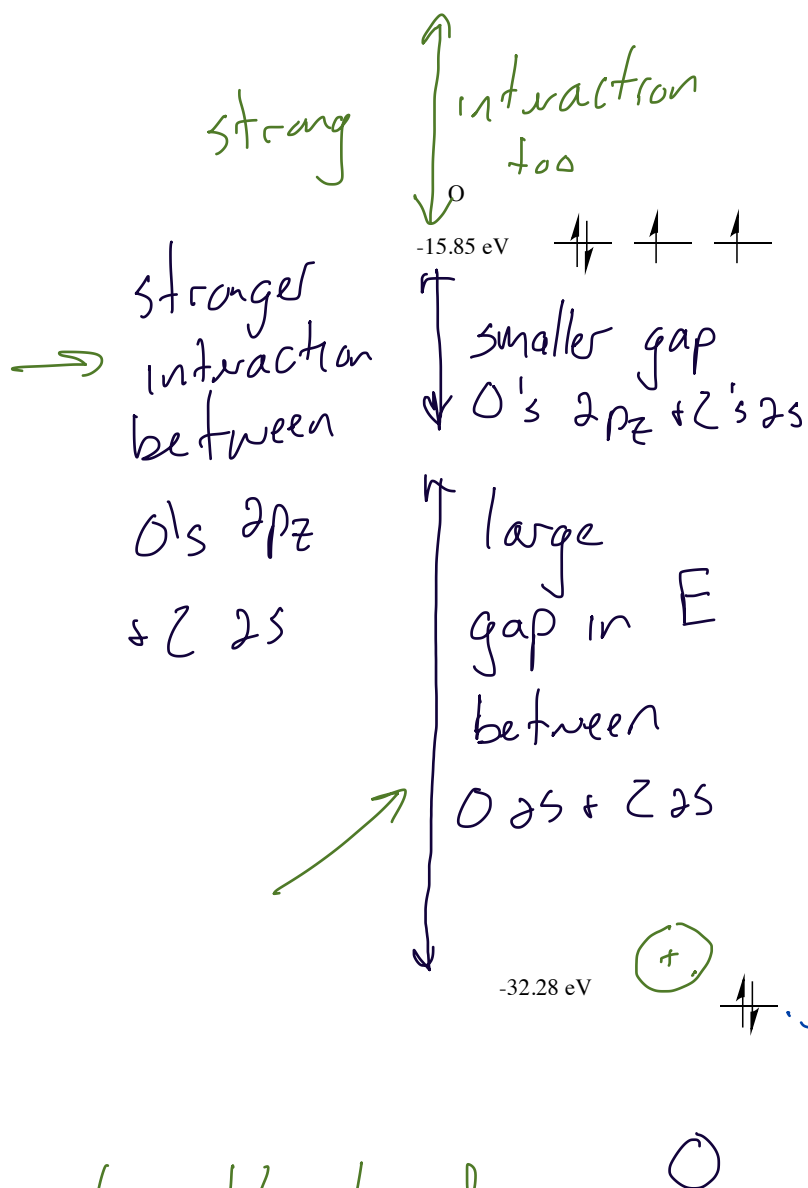 strong
interaction
too
O
-15.85 eV
stronger
interaction
between
O's 2pz
& C 2s
smaller gap
O's 2pz & C's 2s
large
gap in E
between
O 2s & C 2s
-32.28 eV
+
O